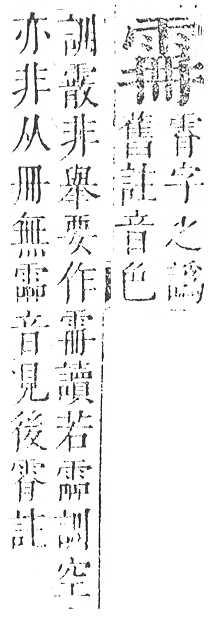 霄字之譌
舊註音色
訓霰非舉要作讀若霝訓空
亦非从冊無霝音見後霄註